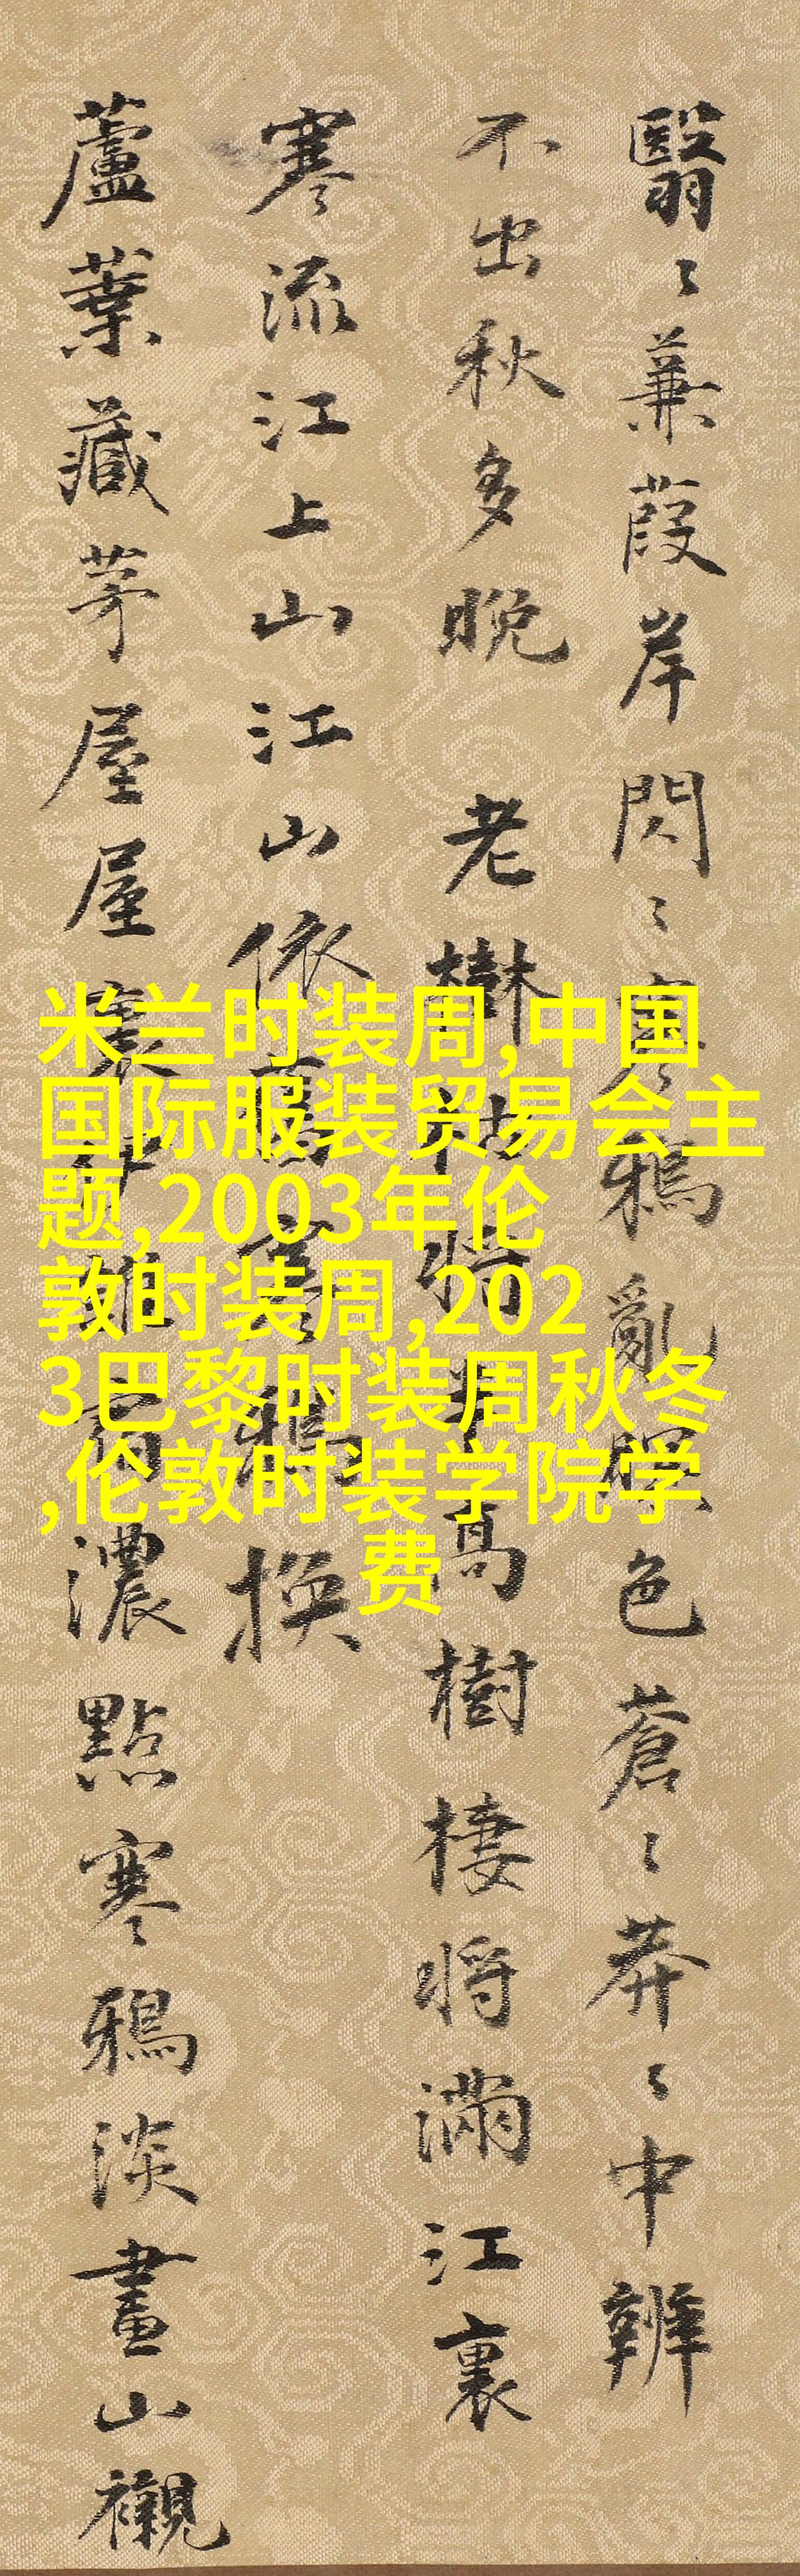 翳〻蒹葭岸閃〻寒鴉亂暝色蒼〻莽〻中辨
不出秋多晚 老樹枯將半高樹棲將滿江裏
寒流江上山江山依舊寒鴉換
蘆葉藏茅屋屋裏伊誰宿濃點寒鴉淡畫山襯
米兰时装周,中国
国际服装贸易会主
题,2003年伦
敦时装周,202
3巴黎时装周秋冬
,伦敦时装学院学
费